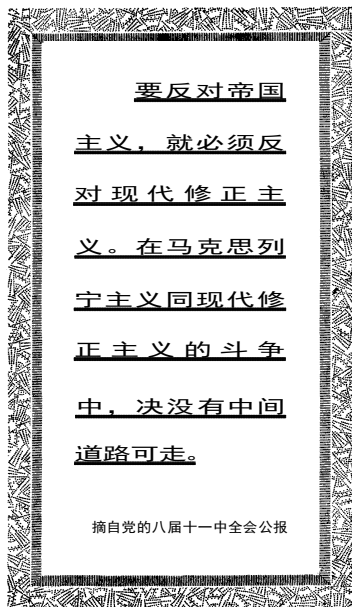 要反对帝国
主义，就必须反
对现代修正主
义。在马克思列
宁主义同现代修
正主义的斗争
中，决没有中间
道路可走。
摘自党的八届十一中全会公报